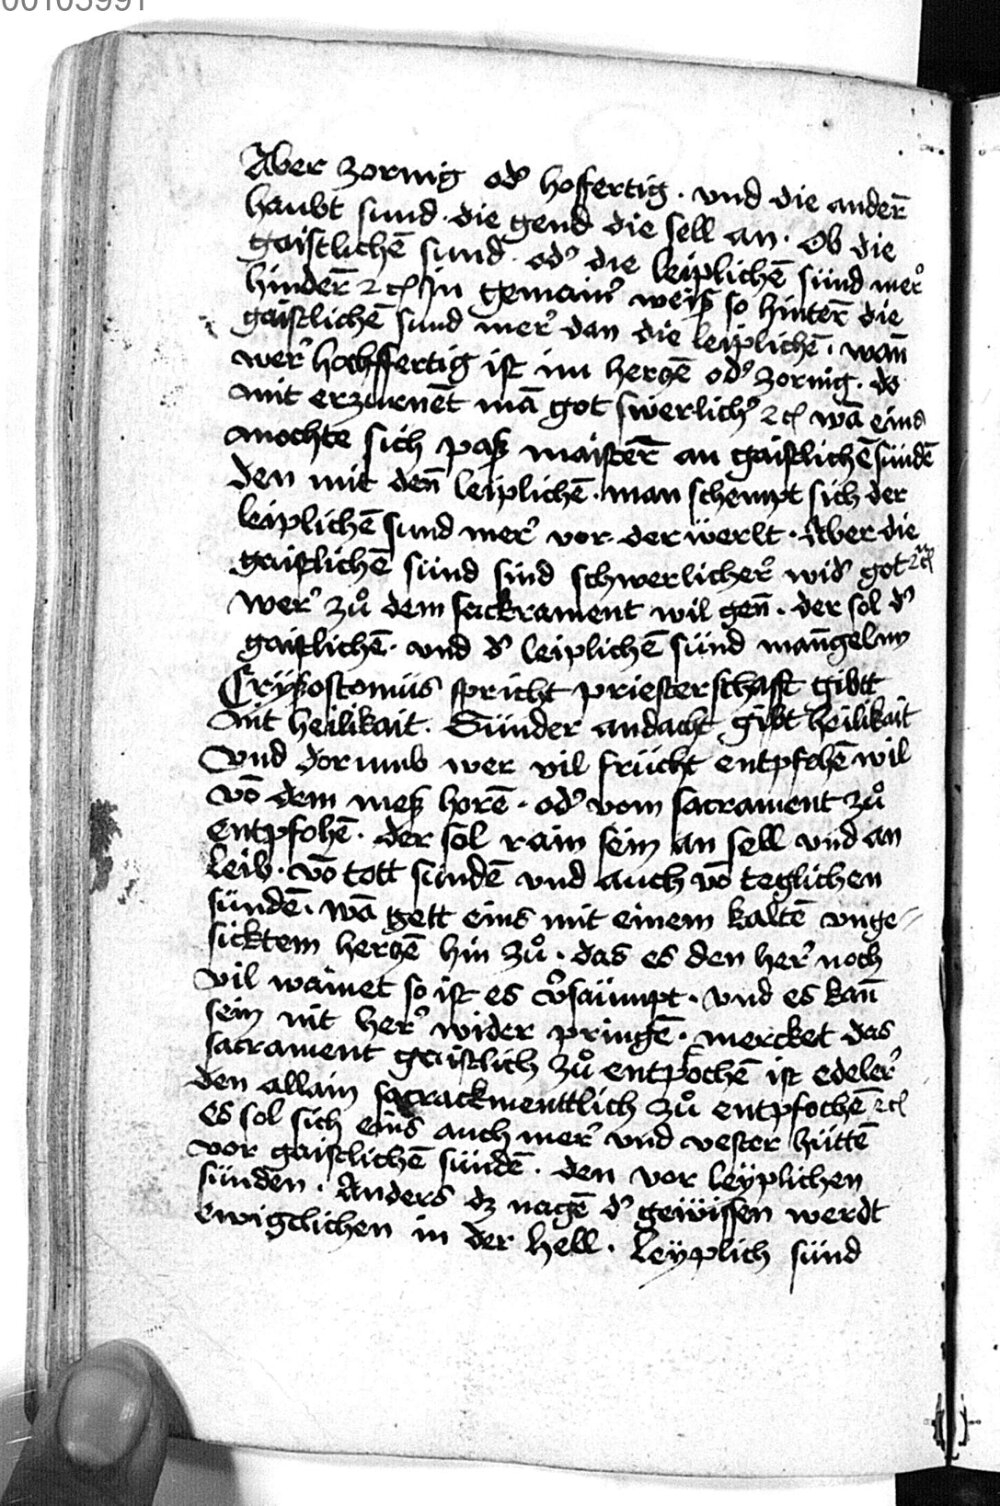 00103991
Aber zornig od' hoffertig · vnd die anderñ
haubt sund · die gend die sell an · Ob die
gaistlichē sund · od' die leiplichē sünd mer'
hinderñ ꝛcꝭ Jn gemain' weiß so hinterñ die
gaistlichē sund mer' dan die leiplichē · wañ
wer' hochffertig ist im herczē od' zornig · do
mit erzurnēt mā got swerlich' ꝛcꝭ wā eind
mochte sich paß maisterñ an gaistlichē sündē
den mit deñ leiplichē · man schempt sich der
leiplichē sund mer' vor der werlt · Aber die
gaistlichē sünd sind schwerlicher' wid' got ꝛcꝭ
wer' zů dem sackrament wil geñ · der sol d'
gaistlichē · vnd d' leiplichē sünd mañgeln
Crÿsostomüs spricht priesterschafft gibtt
nit heilikait · Sünder andacht gibt heilikait
Vnd dorumb wer vil frücht entpfohē wil
vō dem meß horē · od' vom sacrament zů
entpfohē · der sol rain sein an sell vnd an
leib · vō tott sündē vnd auch vō teglichen
sündē · wā gett eins mit einem kaltē vnge-
sicktem herczē hin zů · das es den her' noch
vil wainet so ist es v'saümpt · vnd es kañ
sein nit her' wider pringē · mercket das
sacrament gaistlich zů entpfochē ist edeler'
den allain sacrackmenttlich zů entpfochē ꝛcꝭ
es sol sich eins auch mer' vnd vester hüttē
vor gaistlichē sündē · den vor leÿplichen
sünden · Anders dz nagē d' gewissen werdt
ewigclichen in der hell · leÿplich sünd